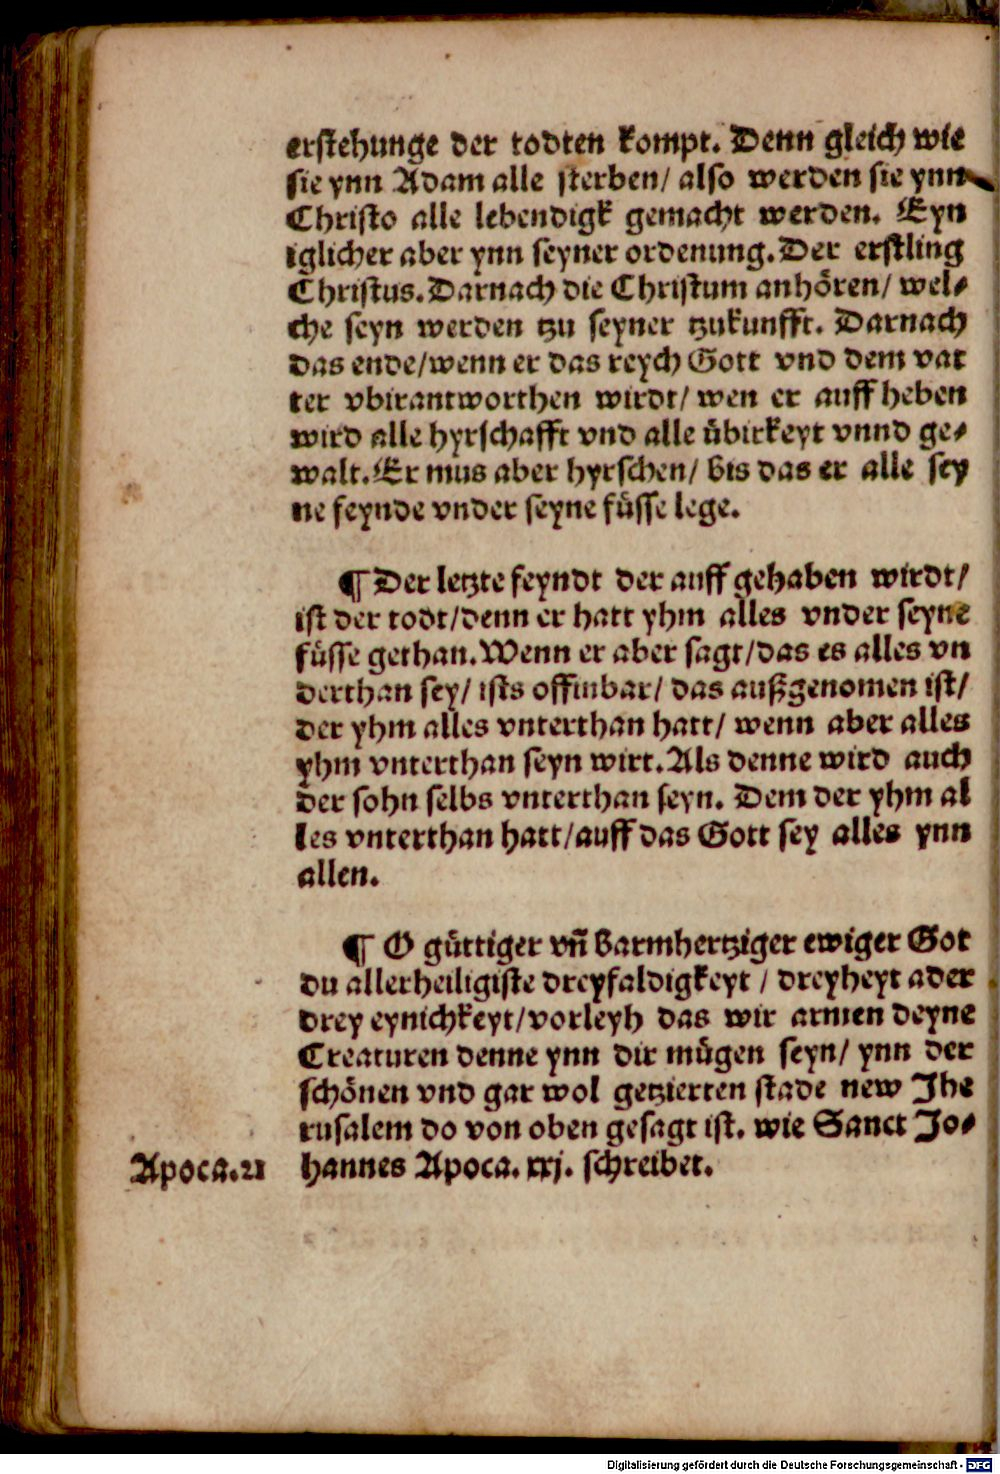 erstehunge der todten kompt. Denn gleich wie
sie ynn Adam alle sterben/ also werden sie ynn
Christo alle lebendigk gemacht werden. Eyn
iglicher aber ynn seyner ordenung. Der erstling
Christus. Darnach die Christum anhören/ wel⸗
che seyn werden tzu seyner tzukunfft. Darnach
das ende/wenn er das reych Gott vnd dem vat
ter vbirantworthen wirdt/ wen er auff heben
wird alle hyrschafft vnd alle übirkeyt vnnd ge⸗
walt. Er mus aber hyrschen/ bis das er alle sey
ne feynde vnder seyne füsse lege.
¶ Der letzte feyndt der auff gehaben wirdt/
ist der todt/denn er hatt yhm alles vnder seyne
füsse gethan. Wenn er aber sagt/das es alles vn
derthan sey/ ists offinbar/ das außgenomen ist/
der yhm alles vnterthan hatt/ wenn aber alles
yhm vnterthan seyn wirt. Als denne wird auch
der sohn selbs vnterthan seyn. Dem der yhm al
les vnterthan hatt/auff das Gott sey alles ynn
allen.
¶ O güttiger vñ barmhertziger ewiger Got
du allerheiligiste dreyfaldigkeyt / dreyheyt ader
drey eynichkeyt/vorleyh das wir armen deyne
Creaturen denne ynn dir mügen seyn/ ynn der
schönen vnd gar wol getzierten stade new Jhe
rusalem do von oben gesagt ist. wie Sanct Jo⸗
Apoca.21 hannes Apoca. xxj. schreibet.
Digitalisierung gefördert durch die Deutsche Forschungsgemeinschaft - DFG